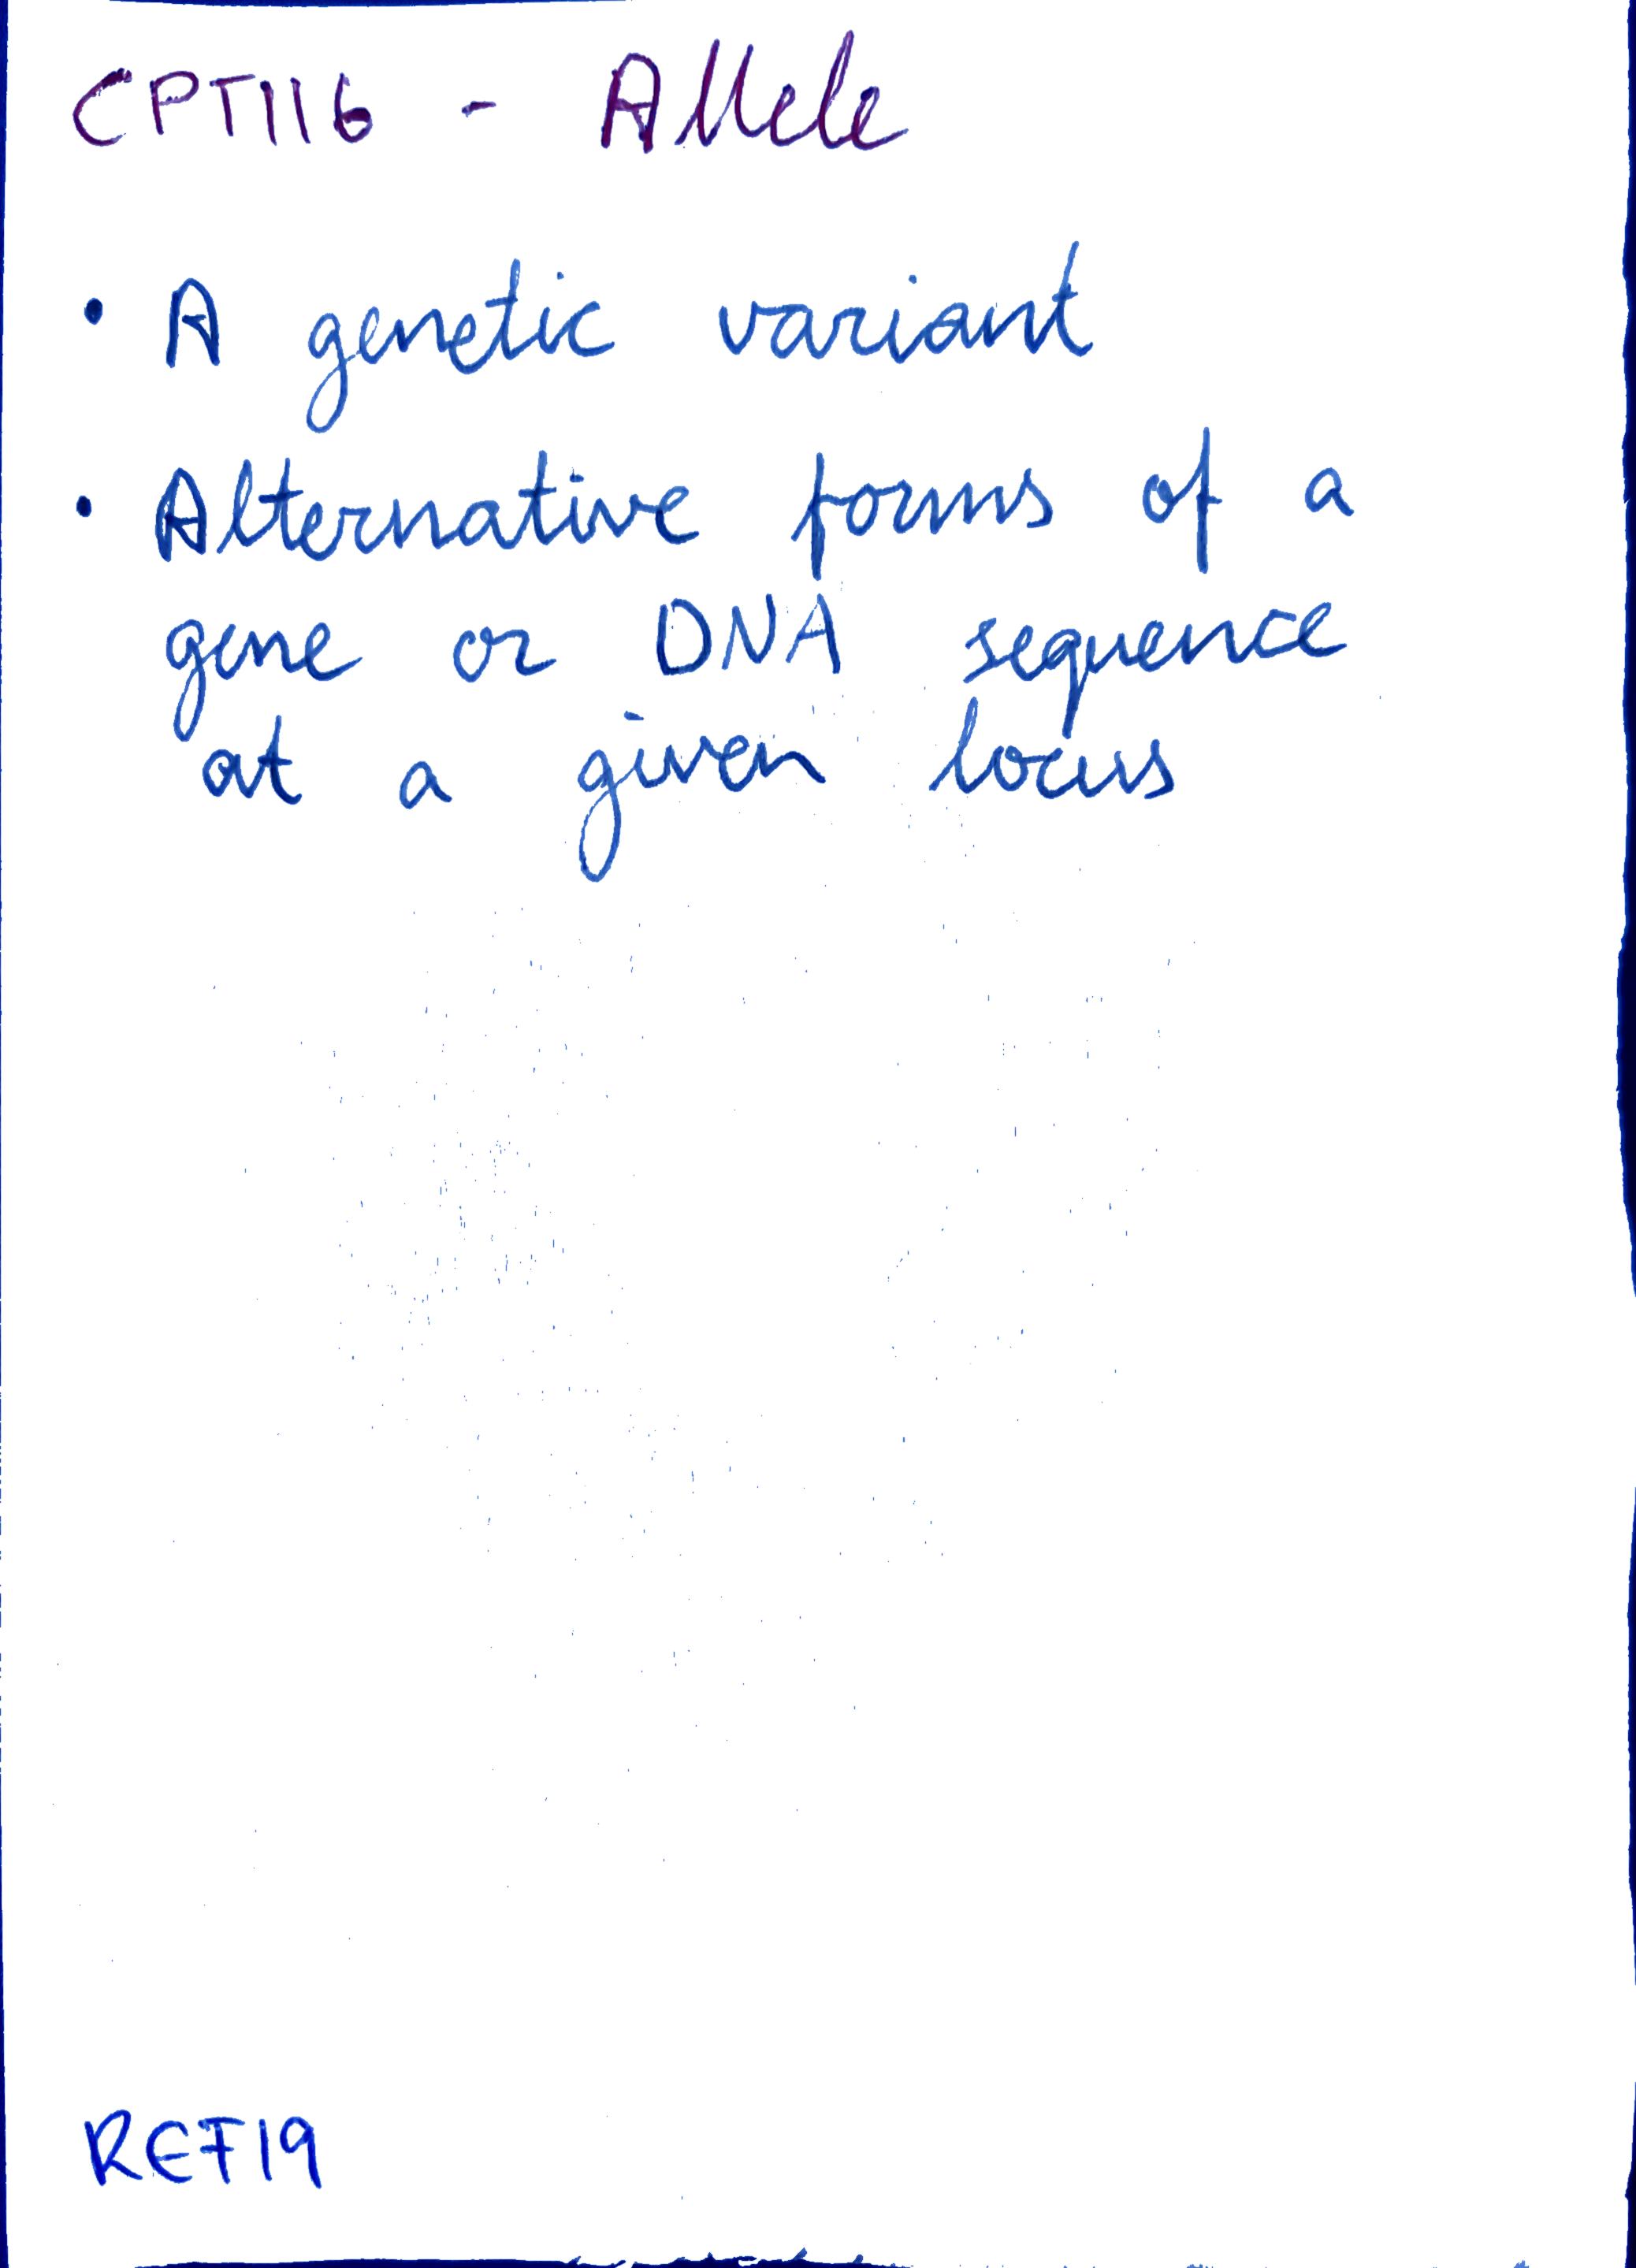 CPT116 - Allele
• A genetic variant
• Alternative forms of a
gene or DNA sequence
at a given locus
REF19